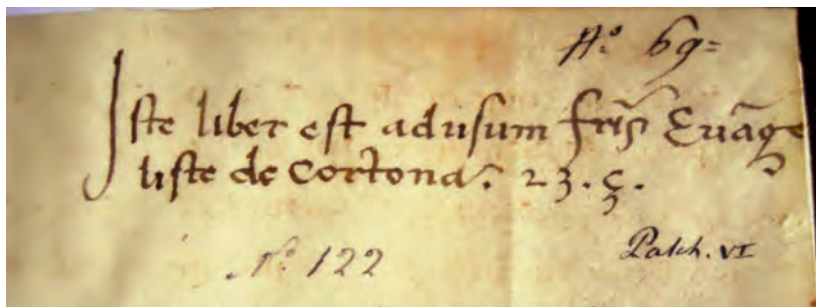 Aº 69=
Iste liber est adusum fr̃is Euãge
liste de Cortona. 23. ç.
Nº 122
Palch. VI